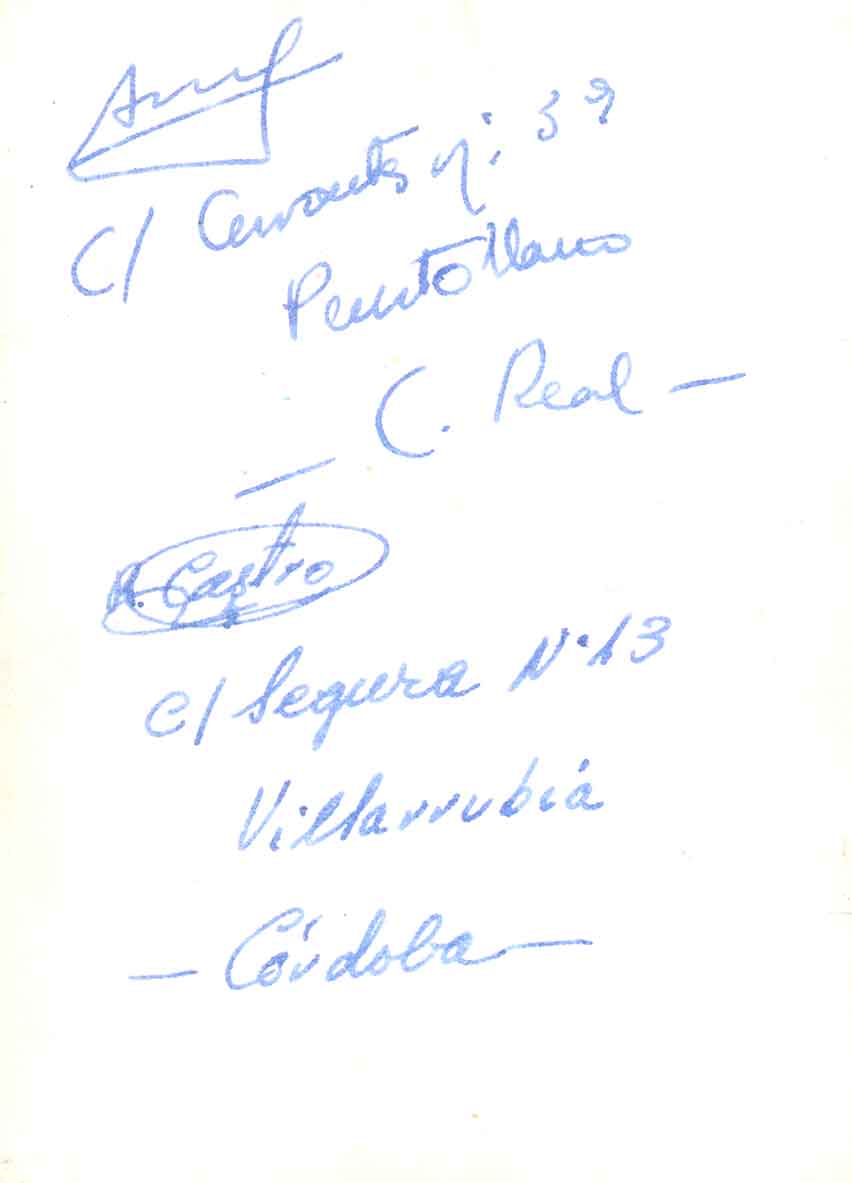 C/ Cervantes nº: 39
Puertollano
C. Real —
—
A. Castro
C/ Segura Nº 13
Villarrubia
— Córdoba —